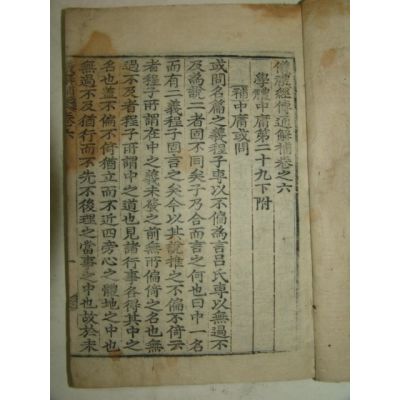 儀禮經傳通解補卷之六
學禮中庸第二十九下附
補中庸或問
或問名篇之義程子專以不偏爲言呂氏專以無過不
及爲說二者固不同矣子乃合而言之何也曰中一名
而有二義程子固言之矣今以其說推之不偏不倚云
者程子所謂在中之義未發之前無所偏倚之名也無
過不及者程子所謂中之道也見諸行事各得其中之
名也蓋不偏不倚猶立而不近四旁心之體地之中也
無過不及猶行而不先不後理之當事之中也故於未